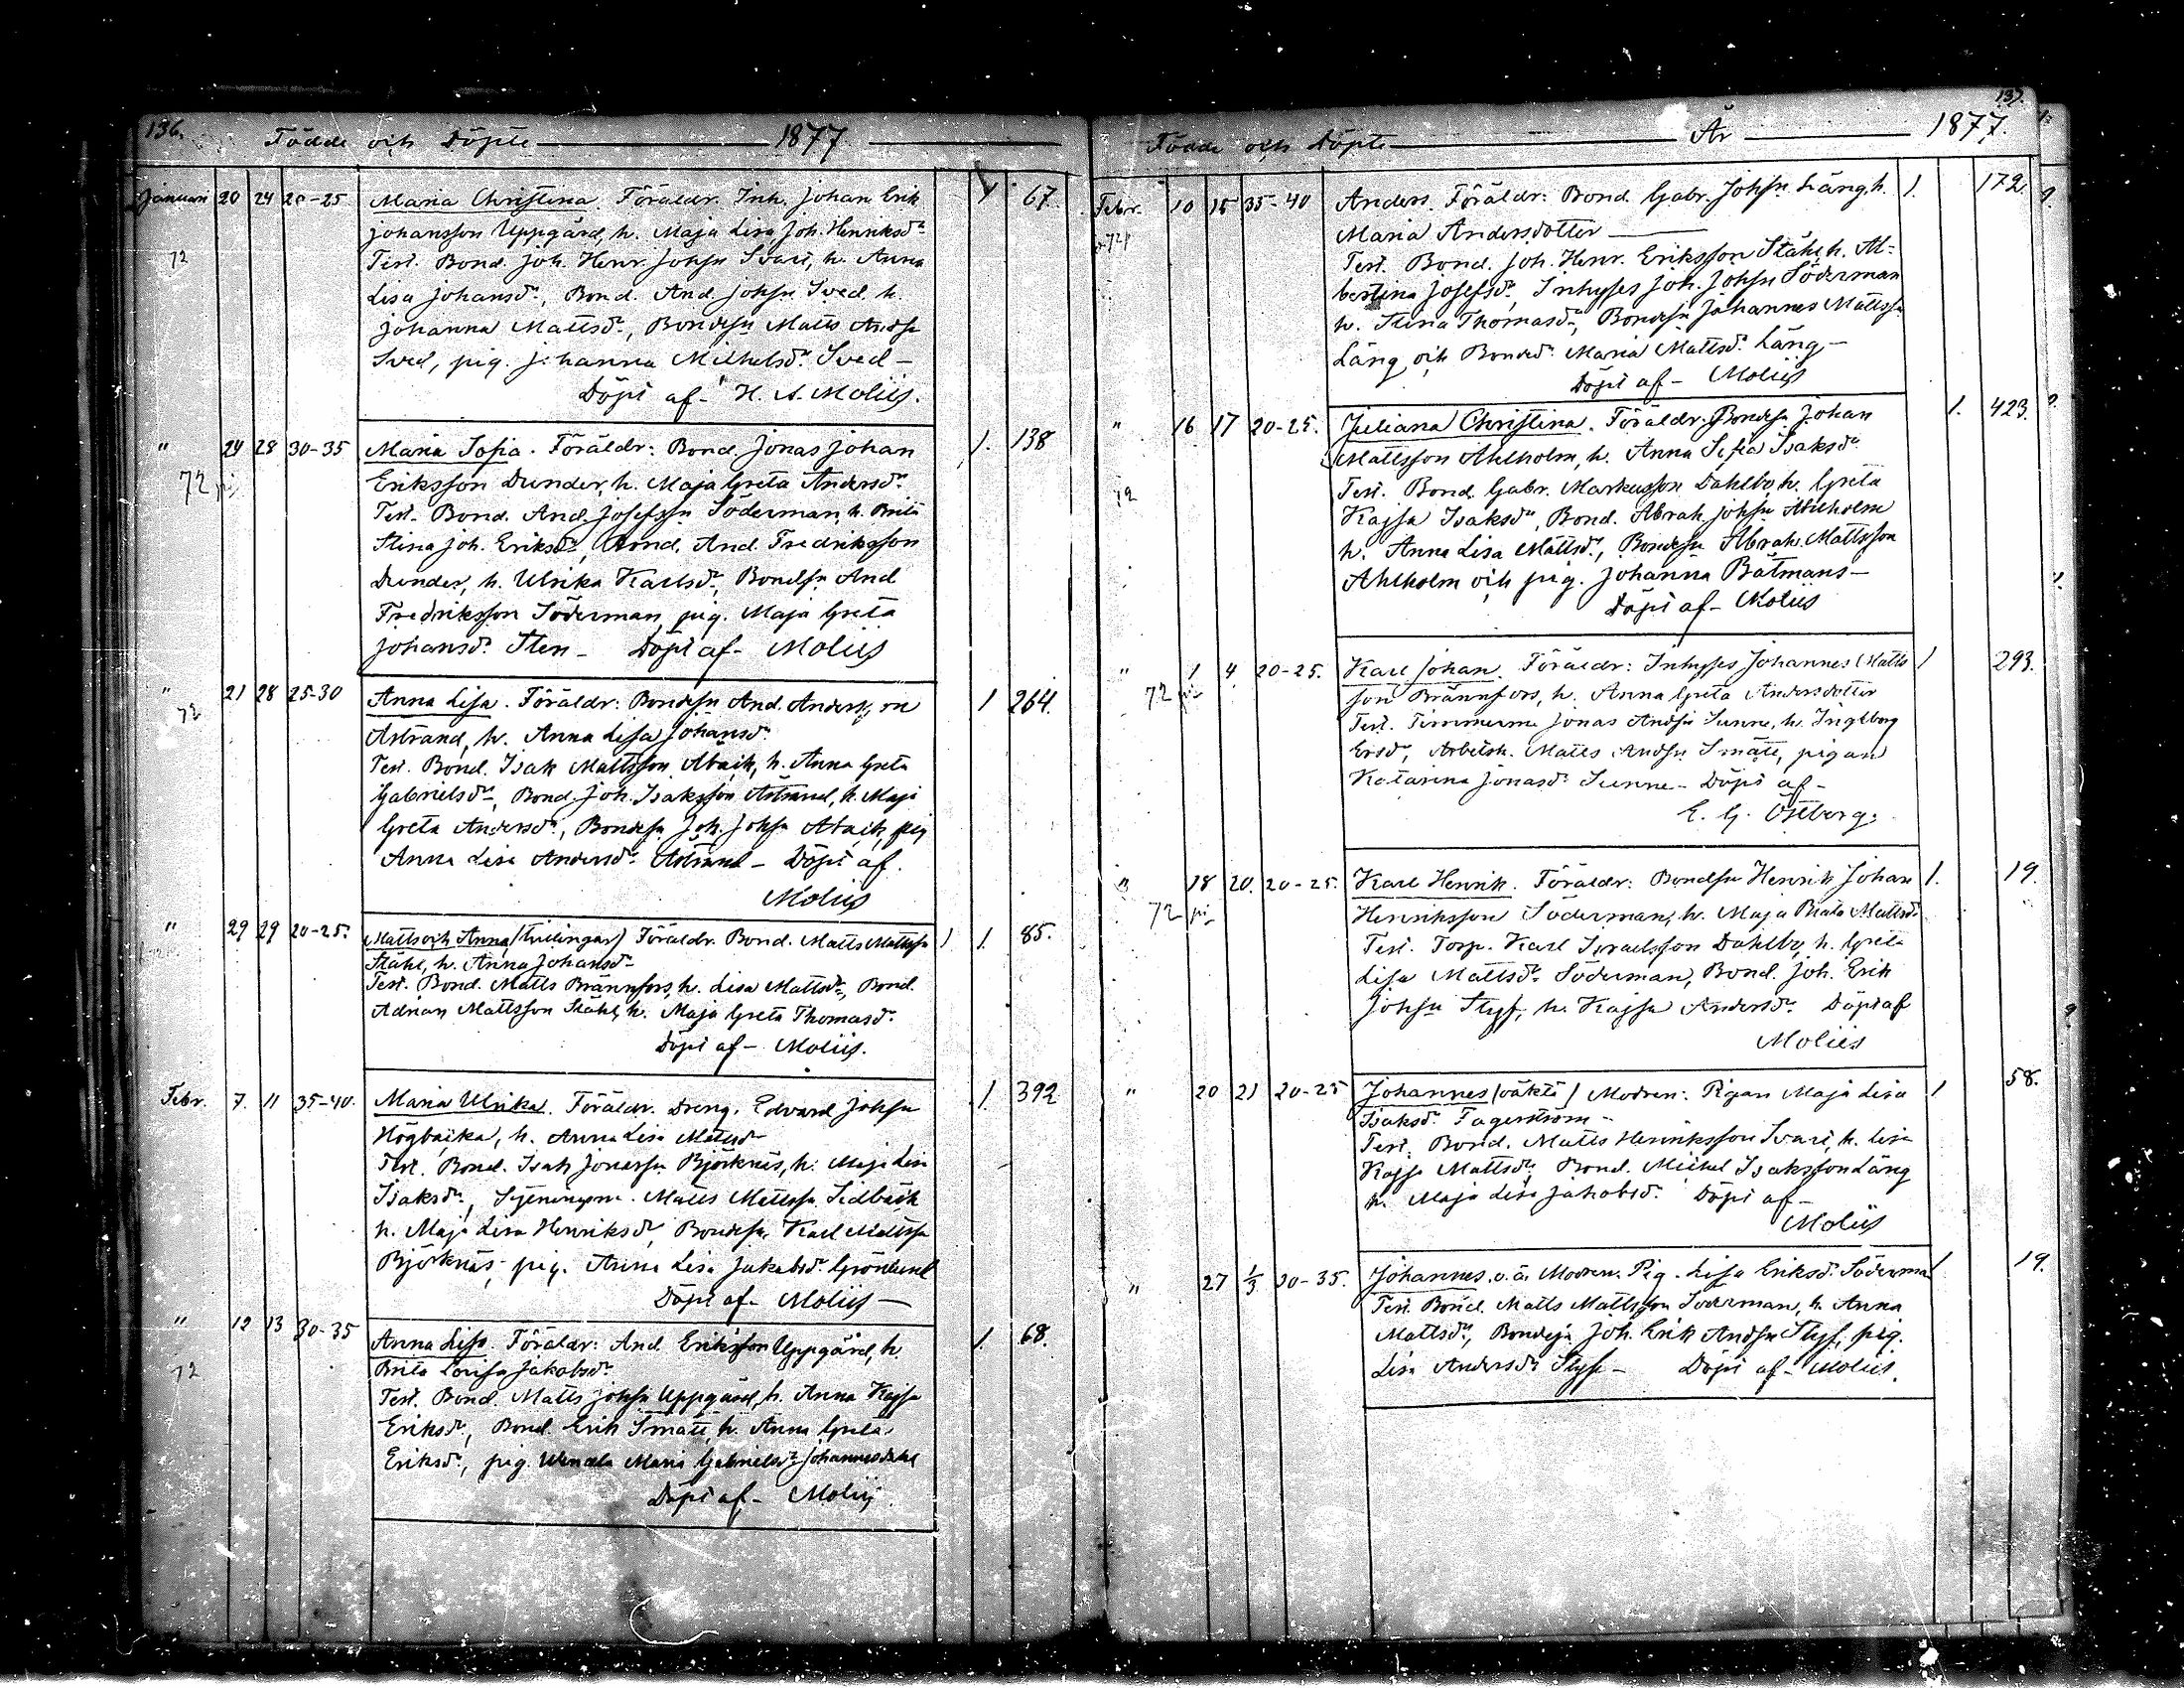 136.
Födde och Döpte 1877
Januari 20 24 20-25 Maria Christina. Föräldr. Inh. Johan Erik 1 67.
Johansson Uppgård, h. Maja Lisa Joh. Henriksdr
72
Test. Bond. Joh. Henr. Johsn Svars, h. Anna
Lisa Johansdr, Bond. And. Johsn Sved h.
Johanna Mattsdr, Bondesn Matts Andsn
Sved, pig. Johanna Michelsdr Sved
Döpt af - H. A. Moliis.
" 24 28 30-35 Maria Sofia. Föräldr: Bond. Jonas Johan 1. 138
72
Eriksson Dunder, h. Maja Greta Andersdr
Test. Bond. And. Josefsson Söderman, h. Brita
Stina Joh. Eriksdr, Bond. And. Fredriksson
Dunder, h. Ulrika Karlsdr, Bondsn And
Fredriksson Söderman, pig. Maja Greta
Johansdr Sten - Döpt af - Moliis
" 21 28 25-30 Anna Lisa. Föräldr: Bondesn And. Andersson 1 264.
72
Åstrand, h. Anna Lisa Johansdr
Test. Bond. Isak Mattsson Abaik, h. Anna Greta
Gabrielsdr, Bond. Joh. Isaksson Åstrand, h. Maja
Greta Andersdr, Bondesn Joh. Johsn Abaik, pig
Anna Lisa Andersdr Åstrand - Döpt af.
Moliis
" 29 29 20-25. Matts och Anna (tvilingar) Föräldr. Bond. Matts Mattsn 1 1. 85.
Ståhl, h. Anna Johansdr
Test. Bond. Matts Brännfors, h. Lisa Mattsdr, Bond.
Adrian Mattsson Ståhl, h. Maja Greta Thomasdr
Döpt af - Moliis.
Febr. 7. 11 35-40. Maria Ulrika. Föräldr. Dreng. Edvard Johsn 1. 392
Högbacka, h. Anna Lisa Mattsdr
Test. Bond. Isak Jonassn Björknäs, h. Maja Lisa
Isaksdr, Matts Mattssn Sidbäck
h. Maja Lisa Henriksdr, Bondesn Karl Mattssn
Björknäs, pig. Anna Lisa Jakobsdr Grönlund
Döpt af - Moliis
" 12 13 30-35 Anna Lisa. Föräldr: And. Eriksson Uppgård, h 1. 68.
72
Brita Lovisa Jakobsdr
Test. Bond. Matts Johsn Uppgård, h. Anna Kajsa
Eriksdr, Bond. Erik Smått, h. Anna Greta
Eriksdr, pig. Maria Gabrielsdr Johannesdahl
Döpt af - Moliis.
137.
Födde och Döpte År 1877.
Febr. 10 15 35-40 Anders. Föräldr: Bond. Gabr. Johsn Läng, h. 1. 172
Maria Andersdotter
Test. Bond. Joh. Henr. Eriksson Ståhl, h. Al-
bertina Josefsdr, Inhyses Joh. Johsn Söderman
h. Stina Thomasdr, Bondesn Johannes Mattssn
Läng och Bonded. Maria Mattsdr Läng -
Döpt af - Moliis
" 16 17 20-25. Juliana Christina. Föräldr. Bondesn Johan 1. 423.
Mattsson Ahlholm, h. Anna Sofia Isaksdr
72
Test. Bond. Gabr. Markusson Dahlbo, h. Greta
Kajsa Isaksdr, Bond. Abrah. Johsn Ahlholm
h. Anna Lisa Mattsdr, Bondesn Abrah. Mattsson
Ahlholm och pig. Johanna Båtmans -
Döpt af - Moliis
" 1 4 20-25. Karl Johan. Föräldr: Inhyses Johannes Matts 1 293.
72
son Brännfors, h. Anna Greta Andersdotter
Test. Timmerm Jonas Andsn Sunne, h. Ingeborg
Ersdr, Arbetsk. Matts Andsn Smått, pigan
Katarina Jonasdr Sunne - Döpt af -
E. G. Östberg.
" 18 20. 20-25. Karl Henrik. Föräldr: Bondsn Henrik Johan 1. 19.
72
Henriksson Söderman, h. Maja Beata Mattsdr
Test. Torp. Karl Israelsson Dahlbo, h. Greta
Lisa Mattsdr Söderman, Bond. Joh. Erik
Johsn Styf, h. Kajsa Andersdr Döpt af
Moliis
" 20 21 20-25 Johannes (oäkta) Modren: Pigan Maja Lisa 1 58.
Isaksdr Fagerström -
Test. Bond. Matts Henriksson Svars, h. Lisa
Kajsa Mattsdr, Bond. Mickel Isaksson Läng
h. Maja Lisa Jakobsdr Döpt af -
Moliis
" 27 1/3 30-35. Johannes. o.ä. Modren. Pig. Lisa Eriksdr Söderman 1 19.
Test. Bond. Matts Mattsson Söderman, h. Anna
Mattsdr, Bondesn Joh. Erik Andsn Styf, pig.
Lisa Andersdr Styf - Döpt af - Moliis.